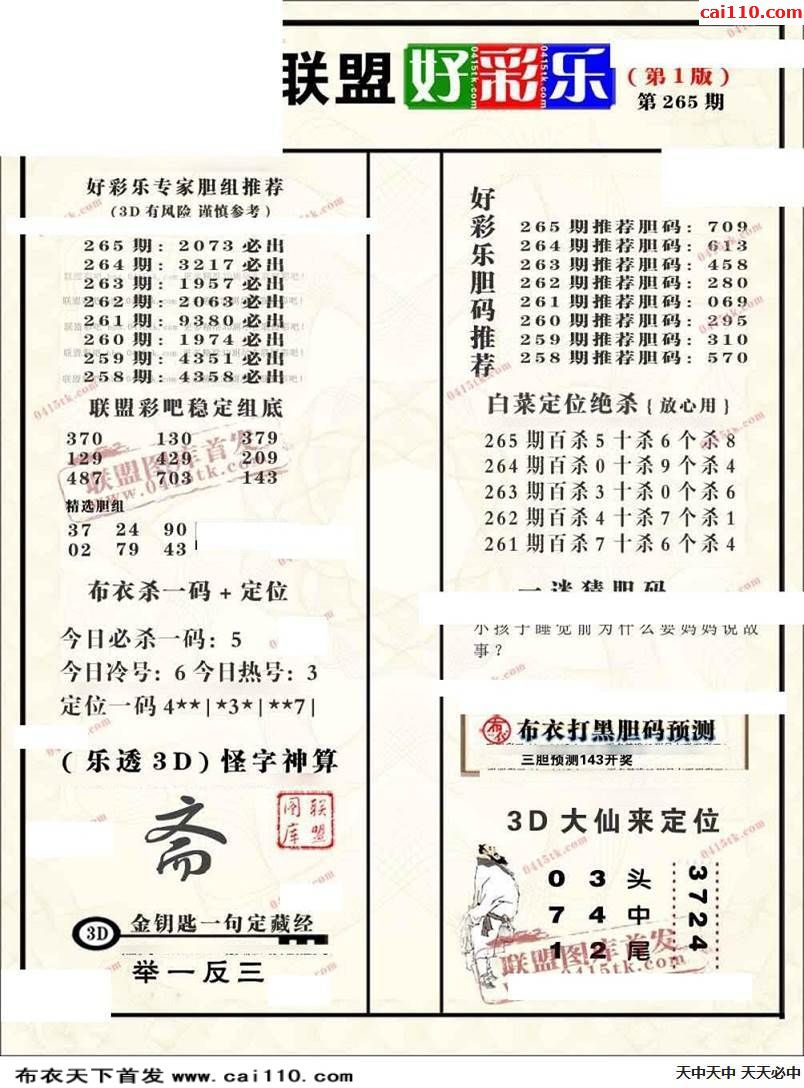 cai110.com
联盟好彩乐
(第1版)
第265期
好彩乐专家胆组推荐
(3D有风险 谨慎参考)
265期:2073必出
264期:3217必出
263期:1957必出
262期:2063必出
261期:9380必出
260期:1974必出
259期:4351必出
258期:4358必出
联盟彩吧稳定组底
370 130 379
129 429 209
487 703 143
联盟图库首发
www.0415tk.com
精选胆组
37 24 90
02 79 43
布衣杀一码+定位
今日必杀一码:5
今日冷号:6 今日热号:3
定位一码 4**|*3*|**7|
(乐透3D)怪字神算
斋
联盟图库
3D 金钥匙一句定藏经
举一反三
好彩乐胆码推荐
265期推荐胆码:709
264期推荐胆码:613
263期推荐胆码:458
262期推荐胆码:280
261期推荐胆码:069
260期推荐胆码:295
259期推荐胆码:310
258期推荐胆码:570
白菜定位绝杀{放心用}
265期百杀5十杀6个杀8
264期百杀0十杀9个杀4
263期百杀3十杀0个杀6
262期百杀4十杀7个杀1
261期百杀7十杀6个杀4
一谜猜胆码
小孩子睡觉前为什么要妈妈说故
事?
布衣打黑胆码预测
三胆预测143开奖
3D大仙来定位
0 3 头
7 4 中
1 2 尾
3724
联盟图库首发
www.0415tk.com
布衣天下首发 www.cai110.com
天中天中 天天必中